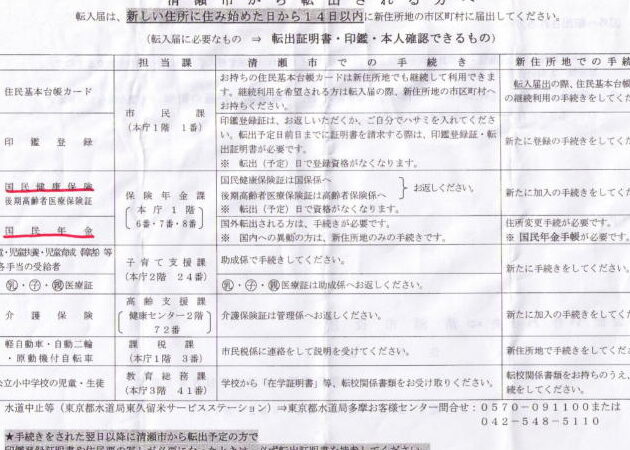 清瀬市から転出される方へ
転入届は、新しい住所に住み始めた日から14日以内に新住所地の市区町村に届出してください。
(転入届に必要なもの ⇒ 転出証明書・印鑑・本人確認できるもの)
担当課 清瀬市での手続き 新住所地での手続
住民基本台帳カード
市民課
(本庁1階 1番)
お持ちの住民基本台帳カードは新住所地でも継続して利用できま
す。継続利用を希望される方は転入届の際、新住所地の市区町村へ
お持ちください。
転入届出の際、住民基本台
の継続利用の手続きをしてくだ
印鑑登録
印鑑登録証は、お返しいただくか、ご自分でハサミを入れてくださ
い。転出予定日前日までに証明書を請求する際は、印鑑登録証・転
出証明書が必要です。
※ 転出(予定)日で登録資格がなくなります。
新たに登録の手続きをしてくだ
国民健康保険
後期高齢者医療保険証
保険年金課
本庁1階
6番・7番・8番
国民健康保険証は国保係へ
後期高齢者医療保険証は高齢者保険係へ
お返しください。
※ 転出(予定)日で資格がなくなります。
新たに加入の手続きをしてくだ
国民年金
国外転出される方は、手続きが必要です。
※ 国内への異動の方は、新住所地のみの手続きです。
住所変更手続が必要です。
※ 国民年金手帳が必要です。
・児童扶養・児童育成(障害)等
各手当の受給者
子育て支援課
(本庁2階 24番)
助成係で手続きしてください。
新たに手続きをしてください。
乳・子・親医療証
乳・子・親医療証は助成係へお返しください。
介護保険
高齢支援課
健康センター2階
72番
介護保険証は管理係へお返しください。
新たに加入の手続きをしてくだ
軽自動車・自動二輪
・原動機付自転車
課税課
(本庁1階 3番)
市民税係に連絡をして説明を受けてください。
新住所地で手続きをしてくだ
公立小中学校の児童・生徒
教育総務課
(本庁3階 41番)
学校から「在学証明書」等、転校関係書類をお受け取りください。
転校関係書類をお持ちのうえ、
続をしてください。
水道中止等(東京都水道局東久留米サービスステーション)⇒東京都水道局多摩お客様センター問合せ:0570-091100または
042-548-5110
★手続きをされた翌日以降に清瀬市から転出予定の方で